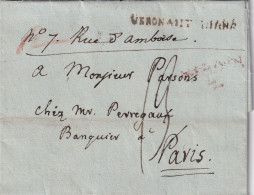 No 7. Rue d'amboise.
A Monsieur Parsons
chéz Mr. Perregaux
Banquier à
Paris.